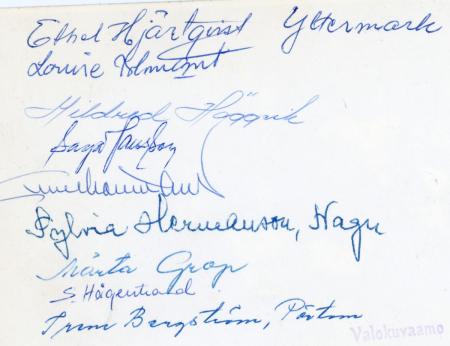 Ethel Hjärtqvist Yttermark
Louise
Hildred Häggvik
Saga
Sylvia Hermanson, Nagu
Märta Grop
S. Högestrand
Bergström, Pörtom
Valokuvaamo